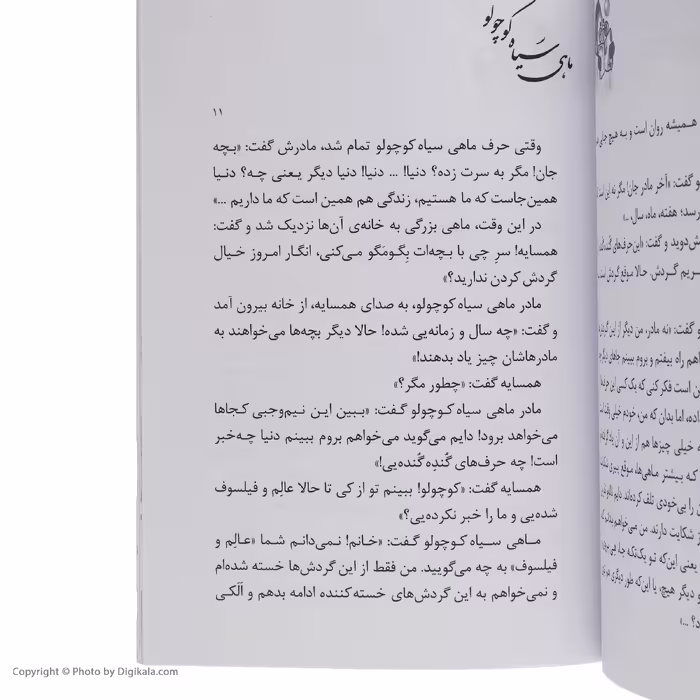 ماهی سیاه کوچولو
۱۱
وقتی حرف ماهی سیاه کوچولو تمام شد، مادرش گفت: «بچه
جان! مگر به سرت زده؟ دنیا! ... دنیا! دنیا دیگر یعنی چه؟ دنیا
همین‌جاست که ما هستیم، زندگی هم همین است که ما داریم ...»
در این وقت، ماهی بزرگی به خانه‌ی آن‌ها نزدیک شد و گفت:
همسایه! سرِ چی با بچه‌ات بِگومَگو می‌کنی، انگار امروز خیال
گردش کردن ندارید؟»
مادر ماهی سیاه کوچولو، به صدای همسایه، از خانه بیرون آمد
و گفت: «چه سال و زمانه‌یی شده! حالا دیگر بچه‌ها می‌خواهند به
مادرهاشان چیز یاد بدهند!»
همسایه گفت: «چطور مگر؟»
مادر ماهی سیاه کوچولو گفت: «ببین این نیم‌وجبی کجاها
می‌خواهد برود! دایم می‌گوید می‌خواهم بروم ببینم دنیا چه‌خبر
است! چه حرف‌های گُنده‌گُنده‌یی!»
همسایه گفت: «کوچولو! ببینم تو از کی تا حالا عالِم و فیلسوف
شده‌یی و ما را خبر نکرده‌یی؟»
ماهی سیاه کوچولو گفت: «خانم! نمی‌دانم شما «عالِم و
فیلسوف» به چه می‌گویید. من فقط از این گردش‌ها خسته شده‌ام
و نمی‌خواهم به این گردش‌های خسته‌کننده ادامه بدهم و اَلَکی
همیشه روان است و به هیچ جایی
گفت: «آخر مادر جان! مگر نه این است
رسد؛ هفته، ماه، سال، ...»
دوید و گفت: «این حرف‌های گنده
گردش. حالا موقع گردش است
گفت: «نه مادر، من دیگر از این گردش‌ها
راه بیفتم و بروم ببینم جاهای دیگر
است فکر کنی که یک کسی این حرف‌ها
اما بدان که من، خودم خیلی وقت است
خیلی چیزها هم از این و آن یاد گرفته‌ام
که بیشتر ماهی‌ها، موقع پیری شکایت
را بی‌خودی تلف کرده‌اند. دایم ناله و نفرین
شکایت دارند. من می‌خواهم بدانم که
یعنی این‌که تو یک‌تکه جا، هی بروی
و دیگر هیچ، یا این‌که طور دیگری هم
Copyright © Photo by Digikala.com